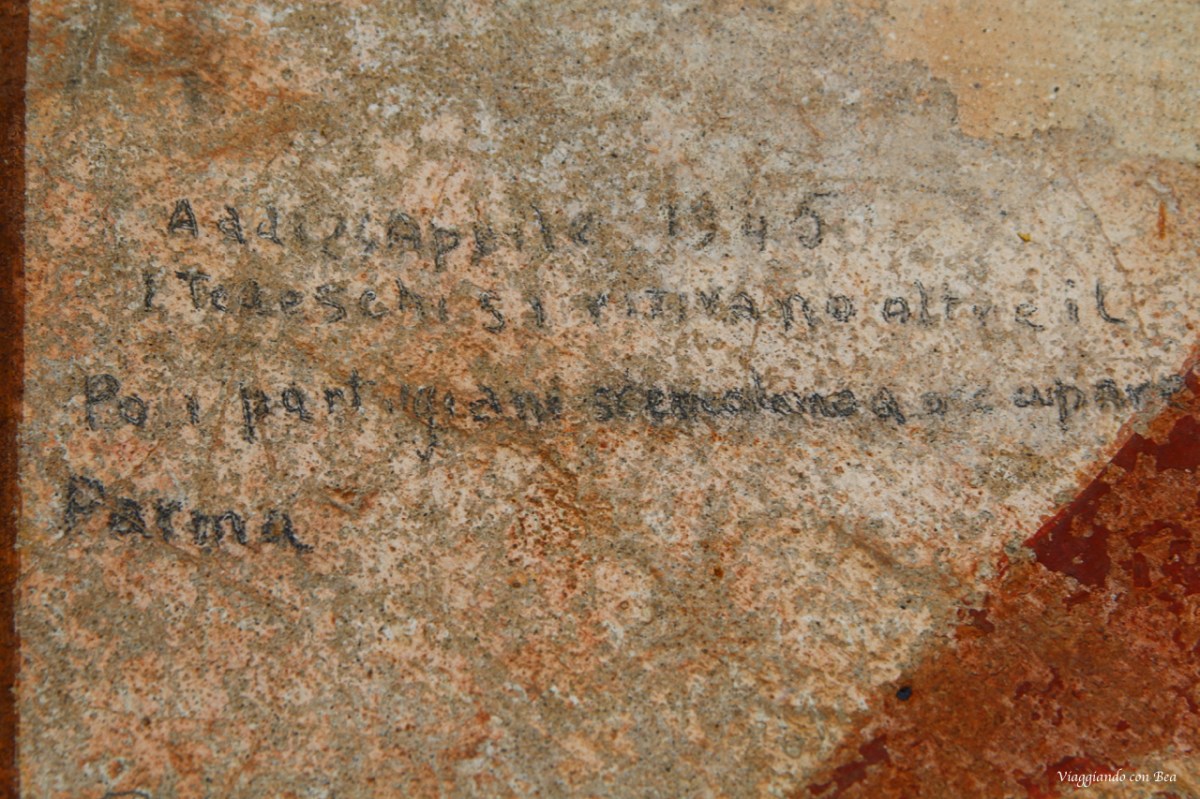 Addi 25 Apprile 1945
I Tedeschi si ritirano oltre il
Po i partigiani scendono a occupare
Parma
Viaggiando con Bea